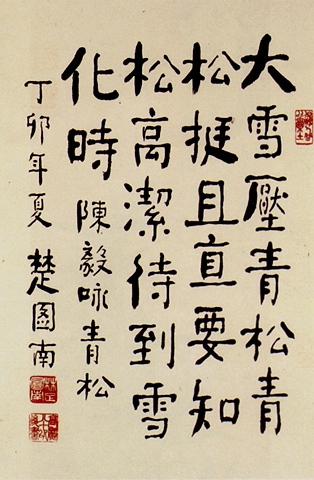 大雪壓青松青
松挺且直要知
松高潔待到雪
化時 陳毅咏青松
丁卯年夏 楚圖南